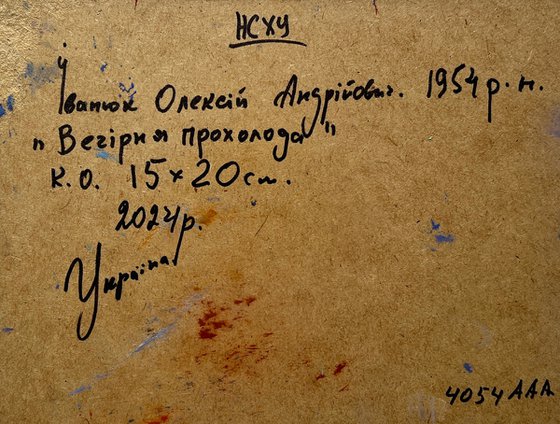 НСХУ
Іванюк Олексій Андрійович. 1954 р. н.
"Вечірня прохолода"
к.о. 15×20 см.
2024р.
Україна
4054 ААА